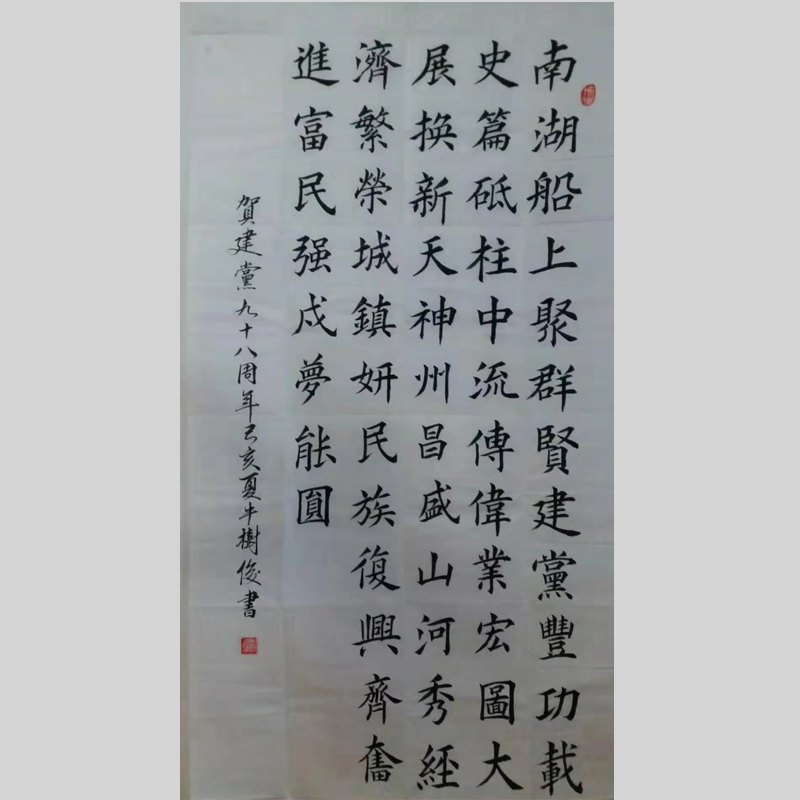 南湖船上聚群賢建黨豐功載
史篇砥柱中流傳偉業宏圖大
展换新天神州昌盛山河秀經
濟繁榮城鎮妍民族復興齊奮
進富民强戍夢能圓
賀建黨九十八周年己亥夏牛樹俊書